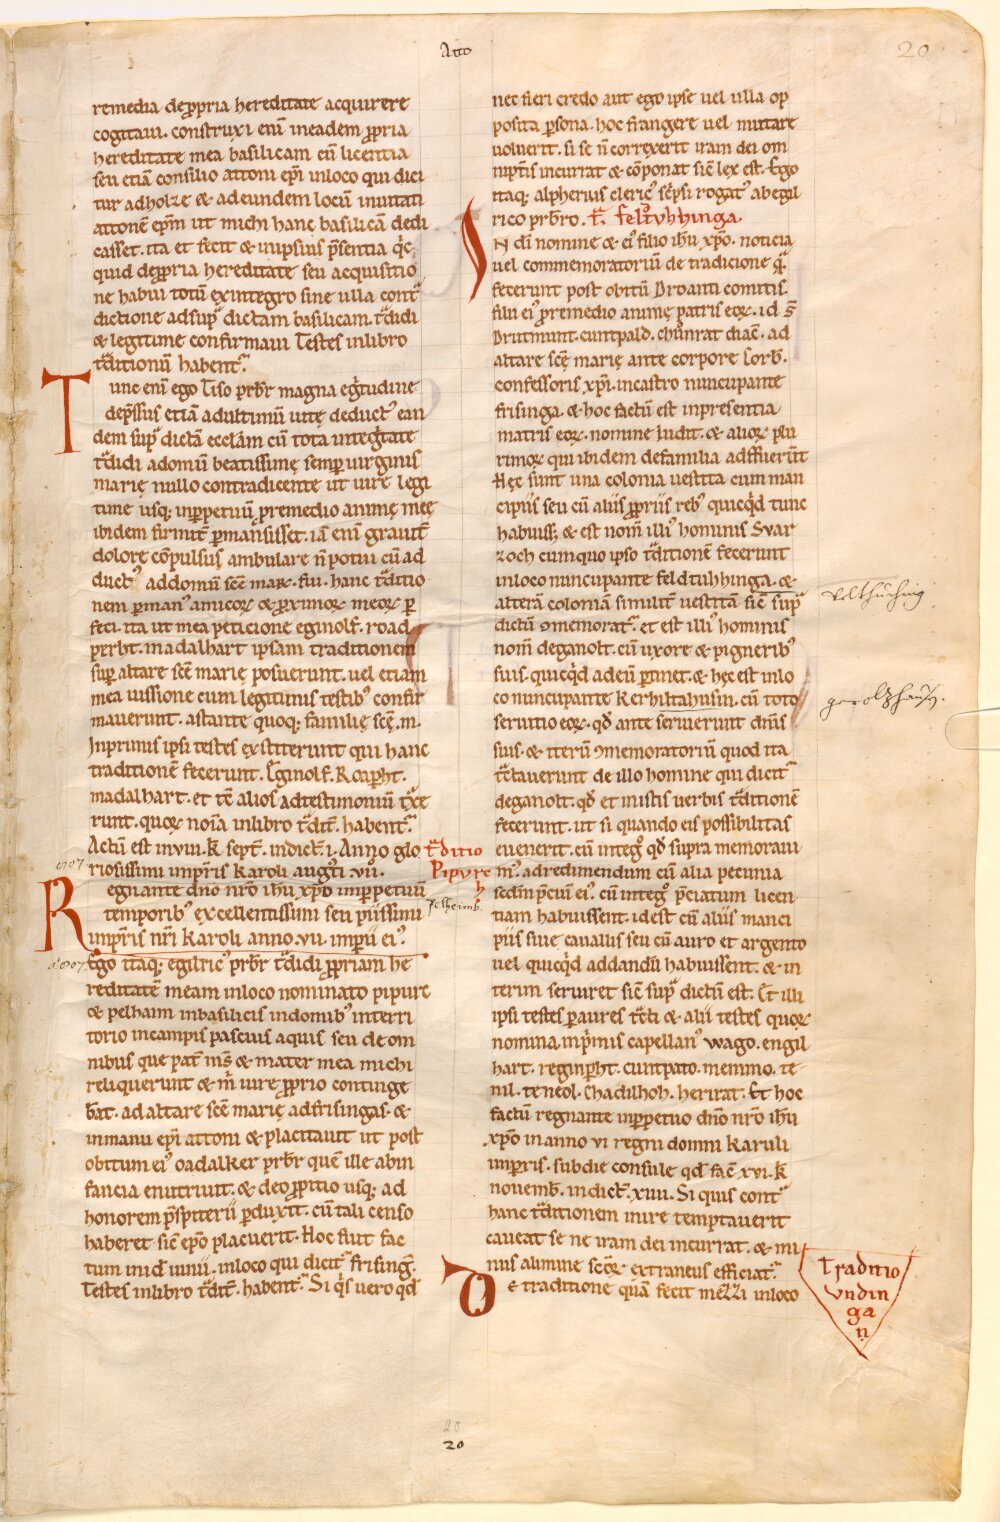 Atto
20
remedia de ꝓpria hereditate acquirere
cogitaui. construxi eni̅ in eadem ꝓpria
hereditate mea basilicam cu̅ licentia
seu etia̅ consilio attoni ep̅i in loco qui dici
tur adholze & ad eundem locu̅ inuitaui
attone̅ ep̅m ut michi hanc basilica̅ dedi
casset. ita et fecit & in ipsius p̅sentia
quid de ꝓpria hereditate seu acquisitio
ne habui totu̅ ex integro sine ulla cont
dictione ad sup dictam basilicam. t̅didi
& legitime confirmaui Testes in libro
t̅ditionu̅ habent̅.
Tunc eni̅ ego Tiso prb̅r magna egritudine
dep̅ssus etia̅ ad ultimu̅ uite̜ deduct᾿ ean
dem sup dicta̅ eccl̅am cu̅ tota integ̅tate
t̅didi ad omu̅ beatissime̜ semp uirginis
marie̜ nullo contradicente ut iure legi
time usq; in ꝑpetuu̅ ꝓ remedio anime̜ mee̜
ibidem firmit̅ ꝑmansisset. ia̅ eni̅ grauit̅
dolore co̅pulsus ambulare n̅ potui cu̅ ad
duct᾿ ad domu̅ sce̅ mar. fui. hanc t̅ditio
nem ꝑ man᾿ amicoꝝ & ꝓximoꝝ meoꝝ ꝑ
feci. ita ut mea peticione eginolf. road
perht. madalhart ipsam traditionem
sup altare sce̅ marie̜ posuerunt. uel etiam
mea iussione cum legitimis testib᾿ confir
mauerunt. astante quoq; familie̜ sce̅. m.
Inprimis ipsi testes exstiterunt qui hanc
traditione̅ fecerunt. Eginolf. Roapht.
madalhart. et te̅ alios ad testimoniu̅ t̅xe
runt. quoꝝ noi̅a in libro t̅dit̅. habent̅.
Actu̅ est in viiii. k̅ sept̅. indict̅. i. Anno glo
riosissimi imp̅ris karoli aug̅ti. vii.
t̅ditio
Pipure
h
Regnante dn̅o nr̅o ihu̅ xp̅o imperpetuu̅
temporib᾿ excellentissimi seu piissimi
imp̅ris nr̅i karoli anno. vii. imperii ei᾿.
Ego itaq; egilric᾿ prb̅r t̅didi ꝓpriam he
reditate̅ meam in loco nominato pipure
& pelhaim in basilicis in domib᾿ in terri
torio in campis pascuis aquis seu de om
nibus que pat̅ m̅s & mater mea michi
reliquerunt & m̅ iure ꝓprio continge
bat. ad altare sce̅ marie̜ ad frisingas. &
in manu ep̅i attoni & placitauit ut post
obitum ei᾿ oadalker prb̅r que̅ ille ab in
fancia enutriuit. & deo ꝓpitio usq; ad
honorem p̅sbiterii ꝑduxit. cu̅ tali censo
haberet sic̅ ep̅o placuerit. Hoc fuit fac
tum in id᾿ iunii. in loco qui dicit̅ frising̅.
Testes in libro t̅dit̅. habent̅. Si q̅s uero qd̅
nec fieri credo aut ego ipse uel ulla op
posita ꝑsona. hoc frangere uel mutare
uoluerit. si se n̅ correxerit iram dei om
nipt̅is incurrat & co̅ponat sic̅ lex est. Ego
itaq; alpherius cleric᾿ sc̅psi rogat᾿ ab egil
rico prb̅ro. t̅. feltuhhinga.
IN di̅ nomine & ei᾿ filio ihu̅ xp̅o. noticia
uel commemoratoriu̅ de tradicione q̅
fecerunt post obitu̅ Droanti comitis.
filii ei᾿ ꝓ remedio anime̜ patris eoꝝ. id s̅
Drutmunt. cuntpald. chunrat diac̅. ad
altare sce̅ marie̜ ante corpore Corb̅.
confessoris xp̅i. in castro nuncupante
frisinga. & hoc factu̅ est in presentia
matris eoꝝ. nomine Iudit. & alioꝝ plu
rimoꝝ qui ibidem de familia adffuer̅t
Hec̜ sunt una colonia uestita cum man
cipiis seu cu̅ aliis ꝓpriis reb᾿ quicq̅d tunc
habuiss; & est nom̅ illi᾿ hominis Svar
zoch cum quo ipso t̅ditione̅ fecerunt
in loco nuncupante feldtuhhinga. &
altera̅ colonia̅ similit̅ uestita̅ sic̅ sup
dictu̅ ꝯmemorat̅. et est illi᾿ hominis
nom̅ deganolt. cu̅ uxore & pignerib᾿
suis. quicq̅d ad eu̅ ꝑtinet. & he̜c est in lo
co nuncupante kerhiltahusin. cu̅ toto
seruitio eoꝝ. qd̅ ante seruierunt dn̅is
suis. & iteru̅ ꝯmemoratoriu̅ quod ita
t̅ctauerunt de illo homine qui dicit̅
deganolt. qd̅ et in istis uerbis t̅ditione̅
fecerunt. ut si quando eis possibilitas
euenerit. eu̅ integ᾿ qd̅ supra memoraui
m᾿. ad redimendum cu̅ alia pecunia
sed̅m p̅ciu̅ ei᾿. cu̅ integ᾿ p̅ciatum licen
tiam habuissent. id est cu̅ aliis manci
piis siue cauallis seu cu̅ auro et argento
uel quicq̅d ad dandu̅ habuissent. & in
terim seruiret sic̅ sup dictu̅ est. Et illi
ipsi testes ꝑ aures t̅cti & alii testes quoꝝ
nomina. inp̅mis capellan᾿ wago. engil
hart. reginpht. cuntpato. memmo. te
nil. teneol. Chadilhoh. herirat. Et hoc
factu̅ regnante inperpetuo dn̅o nr̅o ihu̅
xp̅o in anno vi regni domni karuli
imp̅ris. sub die consule qd̅ fac̅ xvi. k̅
nouemb̅. indict̅. xiiii. Si quis cont
hanc t̅ditionem inire temptauerit
caueat se ne iram dei incurrat. & mi
nus a lumine sc̅oꝝ extraneus efficiat̅.
De traditione qua̅ fecit mezzi in loco
Velthuching
Traditio
undin
ga
n
20
20